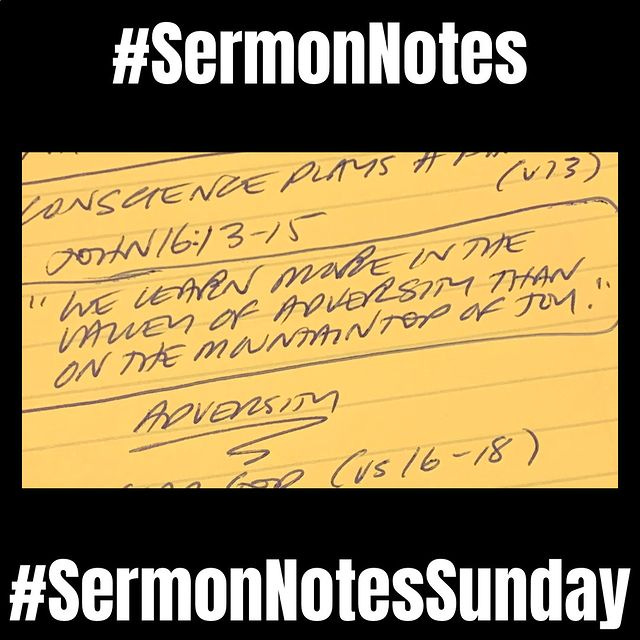 #SermonNotes
CONSCIENCE PLAYS A
(v13)
JOHN 16:13-15
"WE LEARN MORE IN THE
VALLEY OF ADVERSITY THAN
ON THE MOUNTAINTOP OF JOY."
ADVERSITY
GOD (VS 16-18)
#SermonNotesSunday